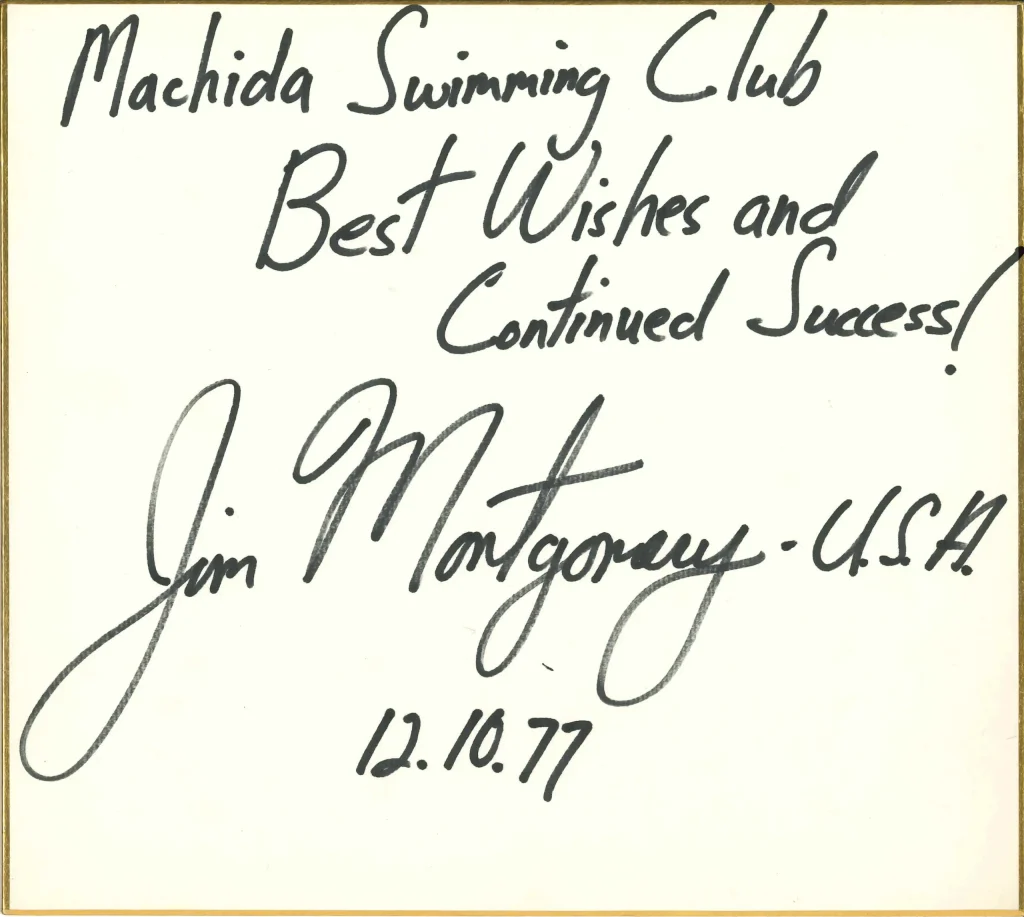 Machida Swimming Club
Best Wishes and
Continued Success!
Jim Montgomery - U.S.A.
12.10.77